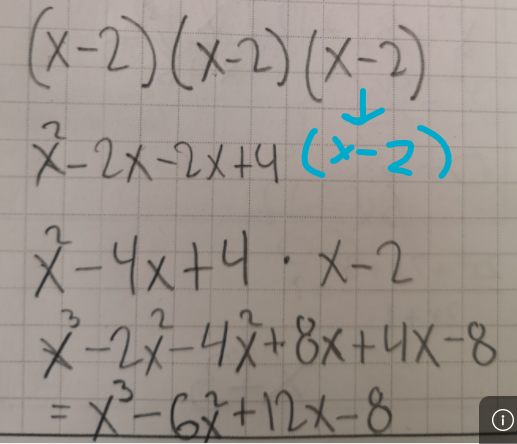 (x-2)(x-2)(x-2)
x²-2x-2x+4 (x-2)
x²-4x+4 · x-2
x³-2x²-4x²+8x+4x-8
=x³-6x²+12x-8